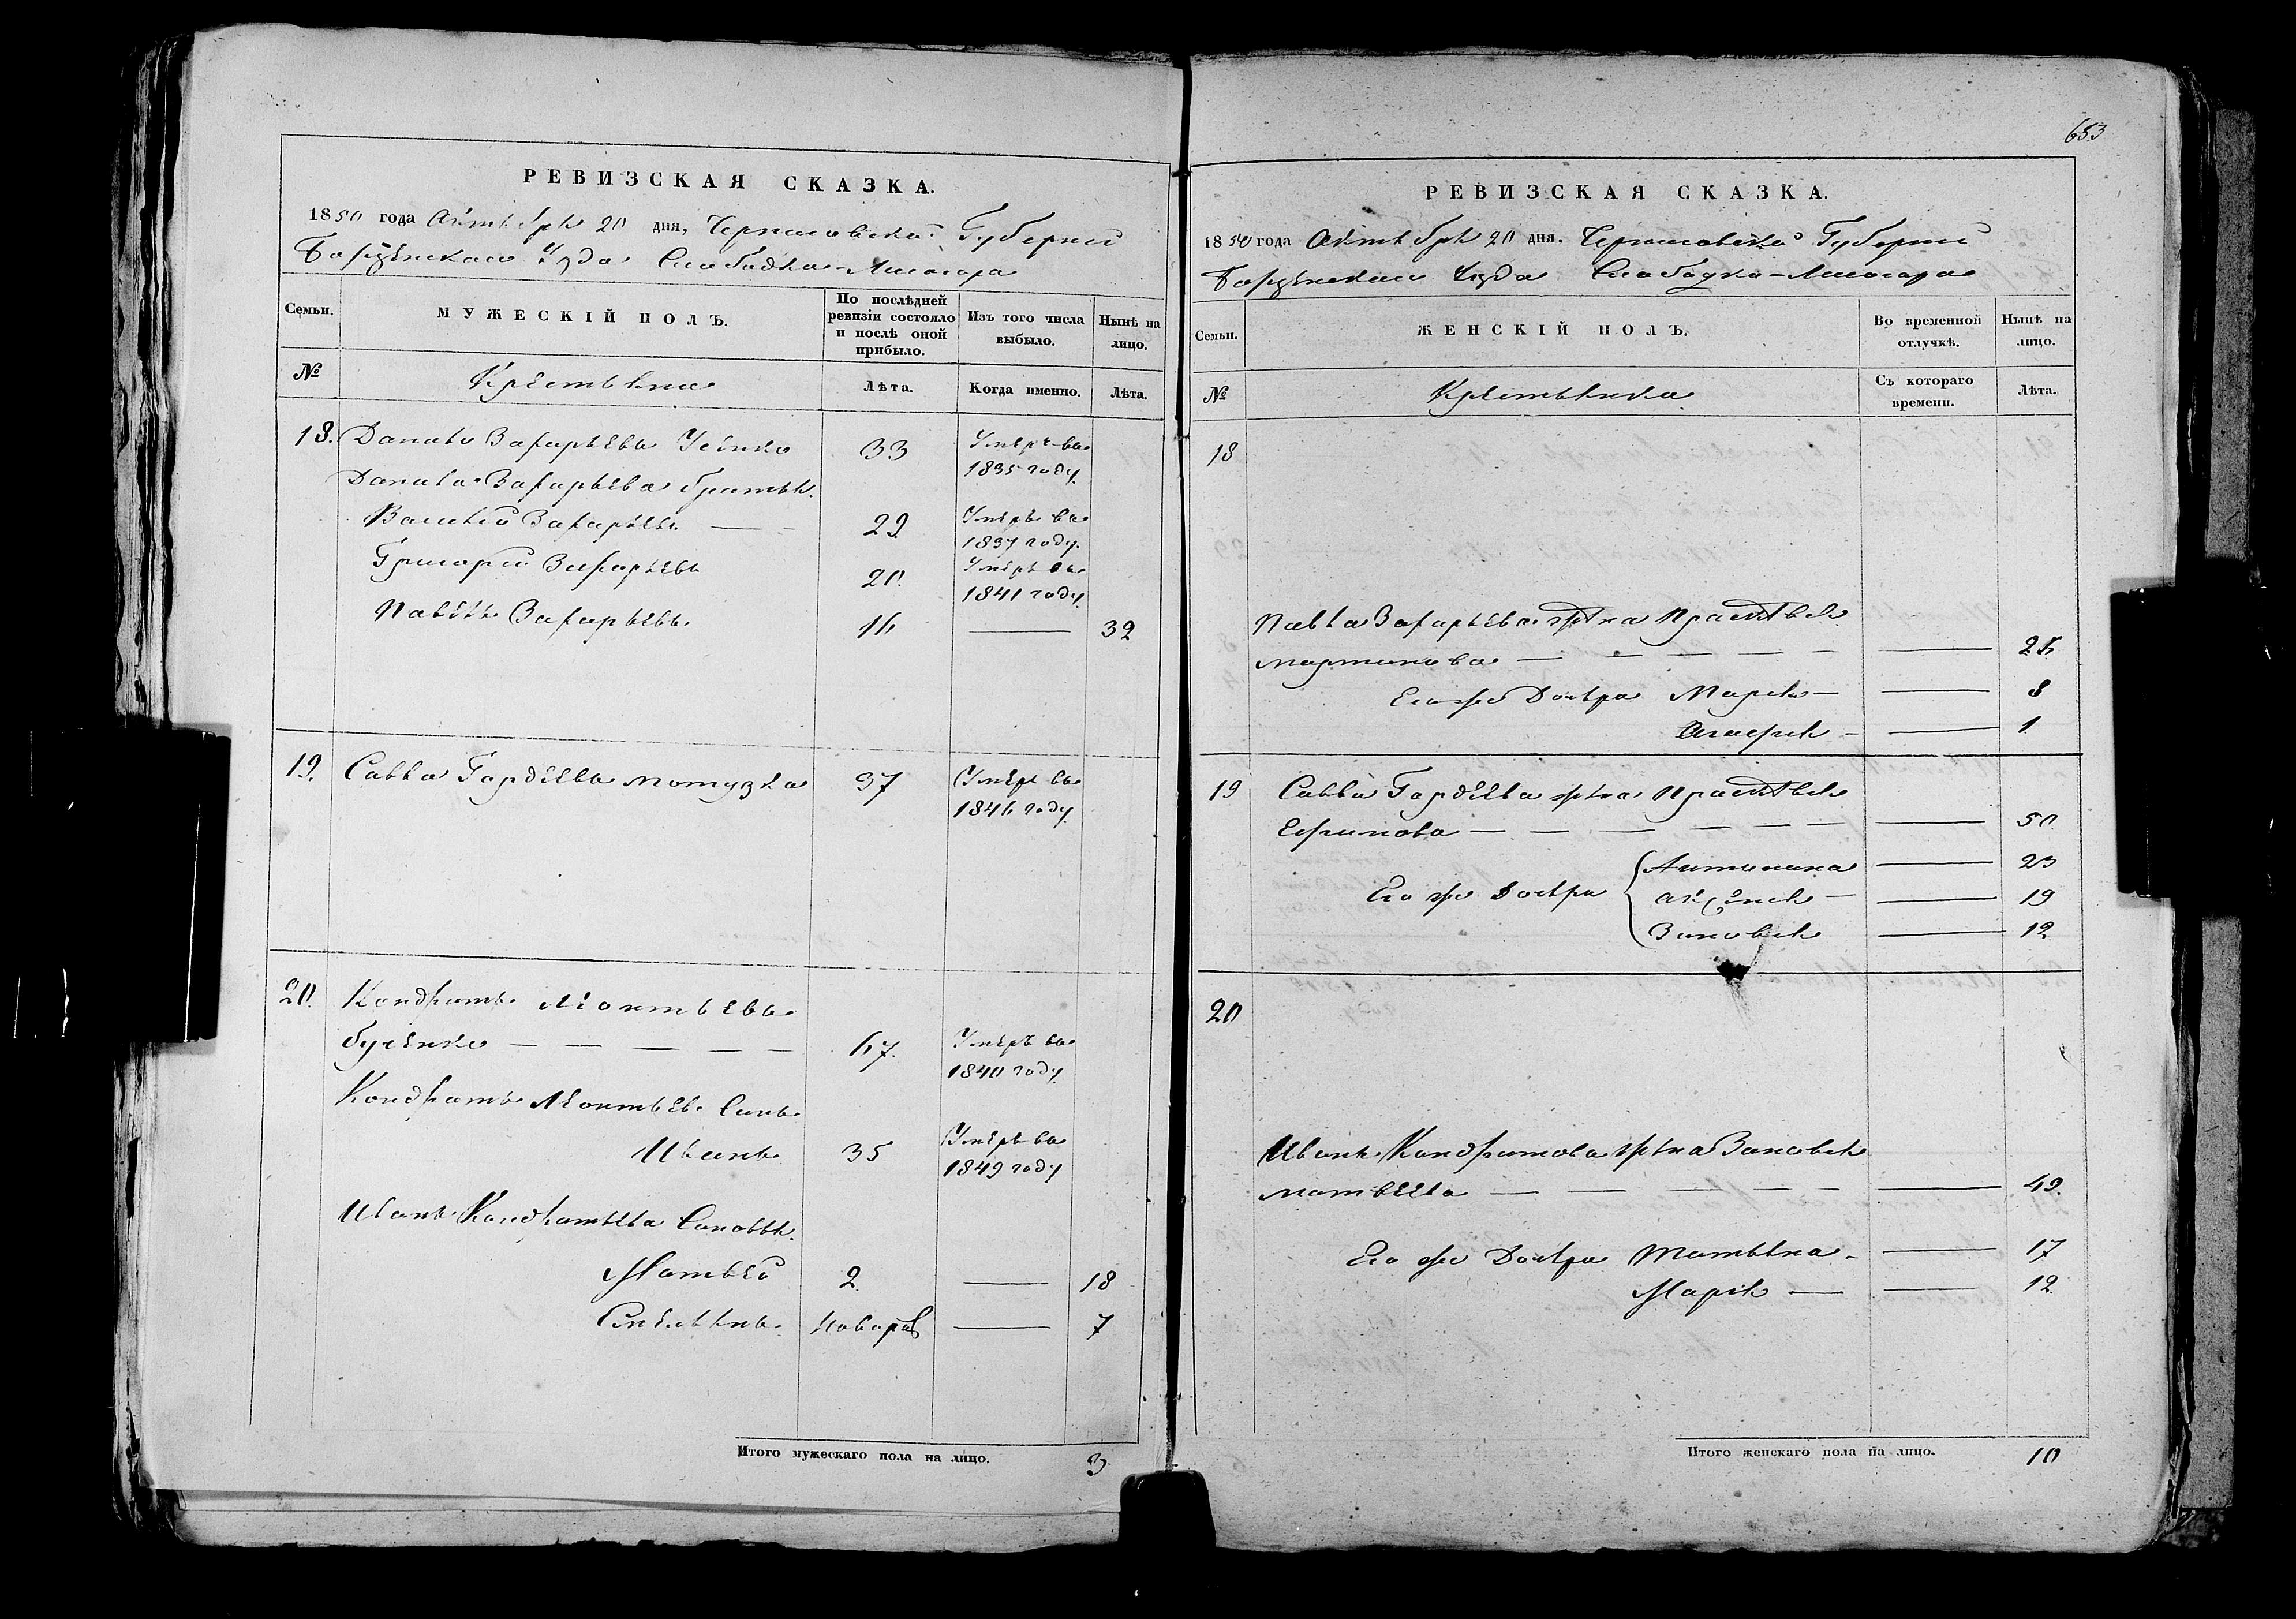 РЕВИЗСКАЯ СКАЗКА.
1850 года Октября 20 дня, Черниговской Губернии
Борзенского Уезда Слободка-Лисогора
Семьи.
МУЖЕСКІЙ ПОЛЪ.
По послѣдней ревизіи состояло и послѣ оной прибыло.
Изъ того числа выбыло.
Нынѣ на лицо.
№
Крестьяне
Лѣта.
Когда именно.
Лѣта.
18. Данило Захарьевъ Усенко 33 Умеръ въ
1835 году.
Данила Захарьева братья
Василий Захарьевъ — 29 Умеръ въ
1837 году.
Григорий Захарьевъ 20. Умеръ въ
1841 году.
Павелъ Захарьевъ 16 — 32
19. Савва Гордеевъ Мотузка 37 Умеръ въ
1846 году.
20. Кондратъ Леонтьевъ
67. Умеръ въ
1840 году.
Кондрата Леонтьева Сынъ
Иванъ 35 Умеръ въ
1849 году
Ивана Кондратьева Сыновья
Матвей 2. — 18
Емельянъ новорож — 7
Итого мужескаго пола на лицо. 3
653
РЕВИЗСКАЯ СКАЗКА.
1850 года Октября 20 дня. Черниговской Губернии
Борзенского Уезда Слободка-Лисогора
Семьи.
ЖЕНСКІЙ ПОЛЪ.
Во временной отлучкѣ.
Нынѣ на лицо.
№
Крестьянка
Съ котораго времени.
Лѣта.
18
Павла Захарьева жена Прасковья
Мартинова — — — — — — 26.
Его же Дочери Мария — — 8
— 1
19 Саввы Гордеева жена Прасковья
Ефимова — — — — — — 50
Его же Дочери Антонина — 23
Аксинья — — 19
Зиновья — 12
20
Ивана Кондратова жена Зиновья
Матвеева — — — — — — 49.
Его же Дочери Татьяна — — 17
Мария — — 12
Итого женскаго пола на лицо. 10